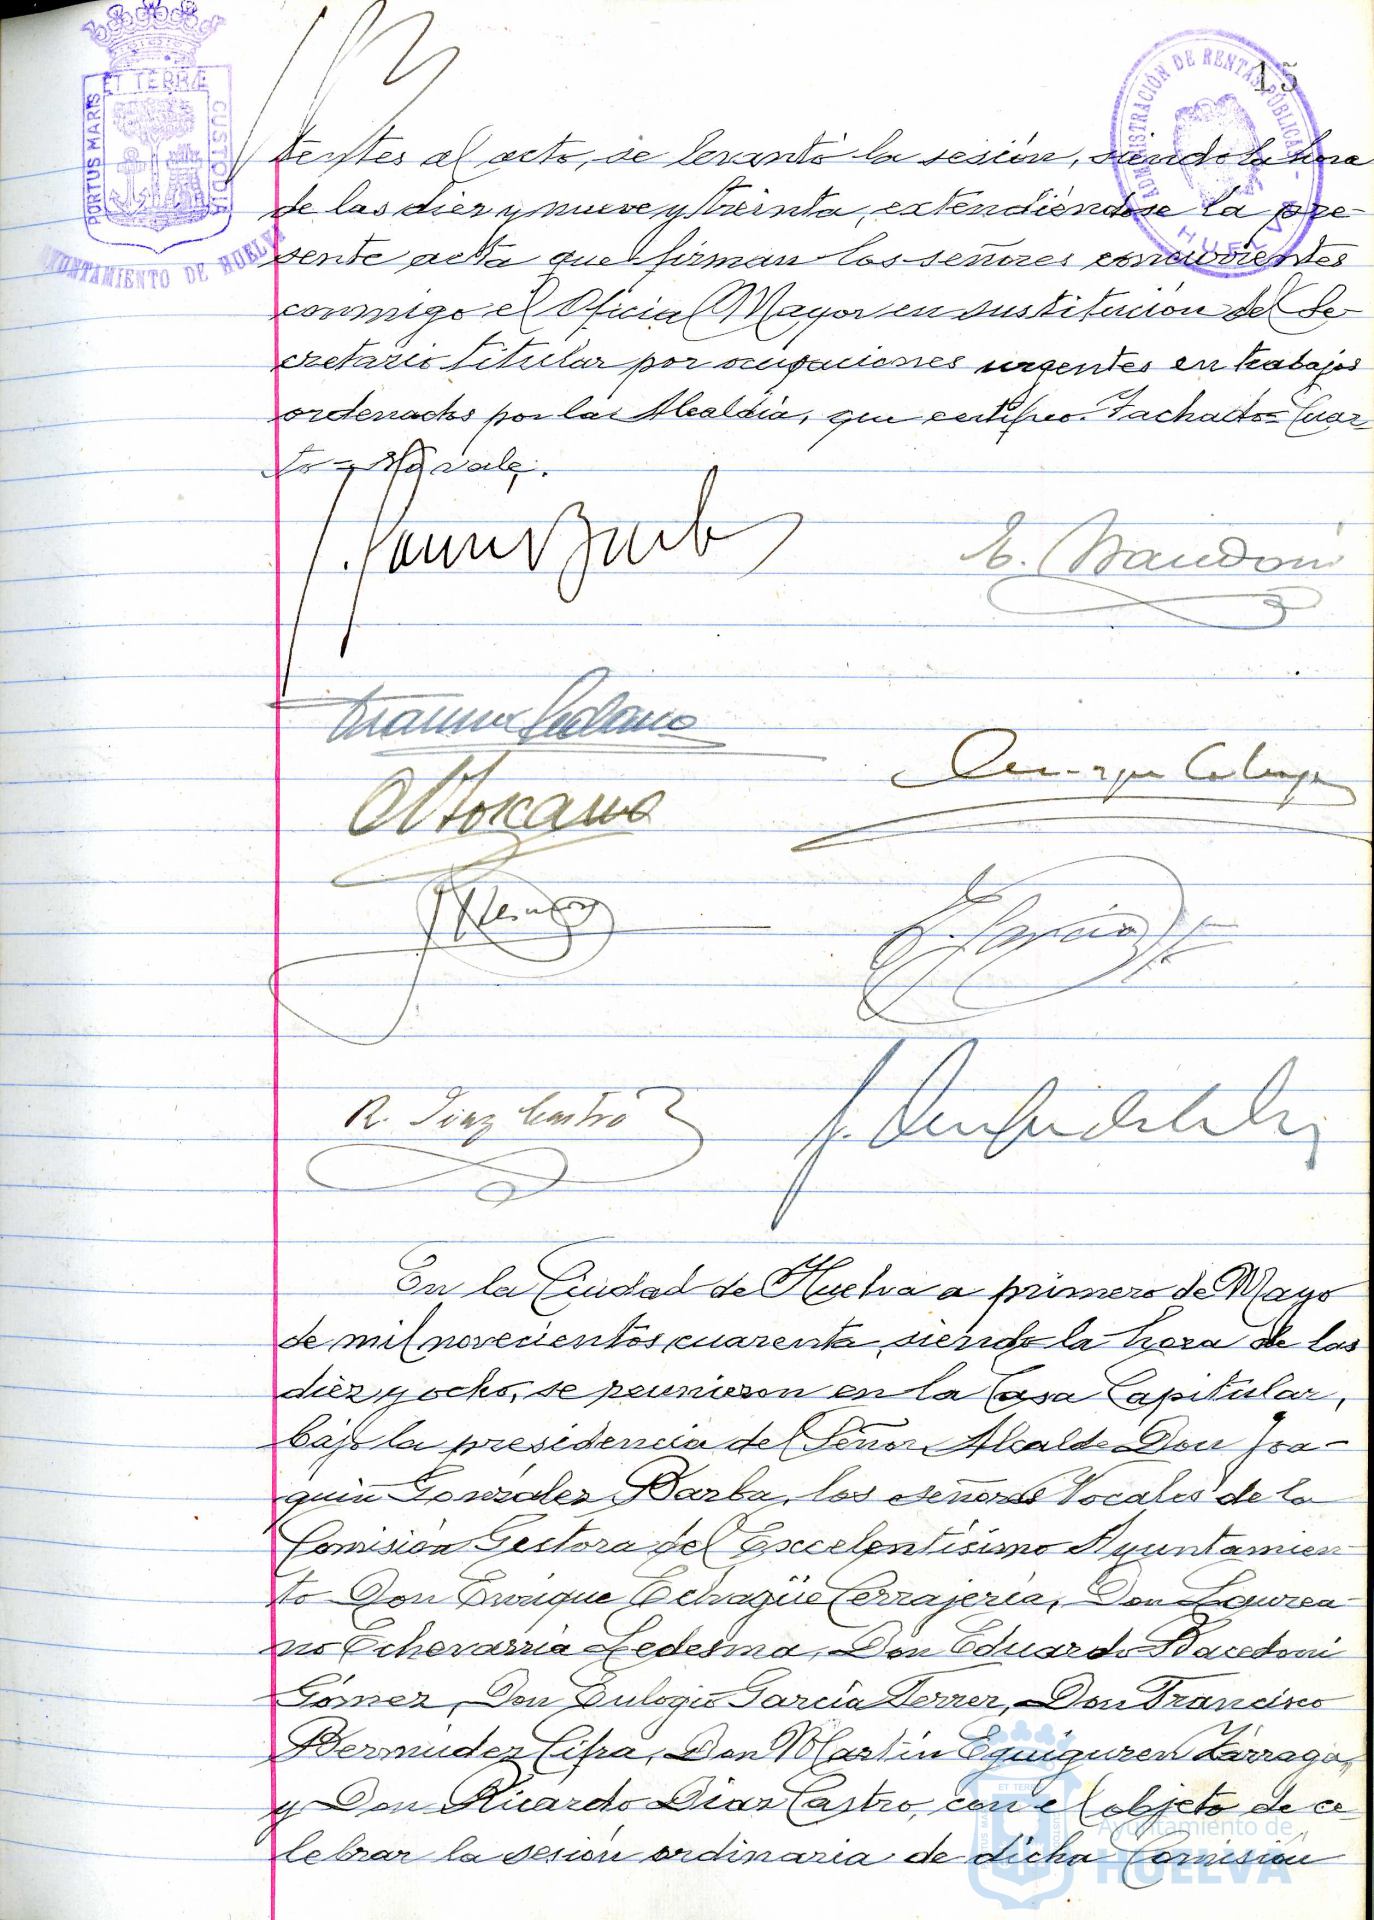 15
PORTUS MARIS ET TERRÆ CUSTODIA
AYUNTAMIENTO DE HUELVA
ADMINISTRACIÓN DE RENTAS PÚBLICAS - HUELVA
tentes al acto, se levantó la sesión, siendo la hora
de las diez y nueve y treinta, extendiéndose la pre-
sente acta que firman los señores concurrentes
conmigo el Oficial Mayor en sustitución del Se-
cretario titular por ocupaciones urgentes en trabajos
ordenados por la Alcaldía, que certifico. Tachado=Cuar-
to=No vale.
R. Díaz Castro
En la Ciudad de Huelva a primero de Mayo
de mil novecientos cuarenta, siendo la hora de las
diez y ocho, se reunieron en la Casa Capitular,
bajo la presidencia del Señor Alcalde Don Joa-
quín González Barba, los señores Vocales de la
Comisión Gestora del Excelentísimo Ayuntamien-
to Don Enrique Echagüe Cerrajería, Don Laurea-
no Echevarría Ledesma, Don Eduardo Bacedoni
Gómez, Don Eulogio García Ferrer, Don Francisco
Bermúdez Cifra, Don Martín Eguiguren Zárraga,
y Don Ricardo Díaz Castro, con el objeto de ce-
lebrar la sesión ordinaria de dicha Comisión
Ayuntamiento de
HUELVA